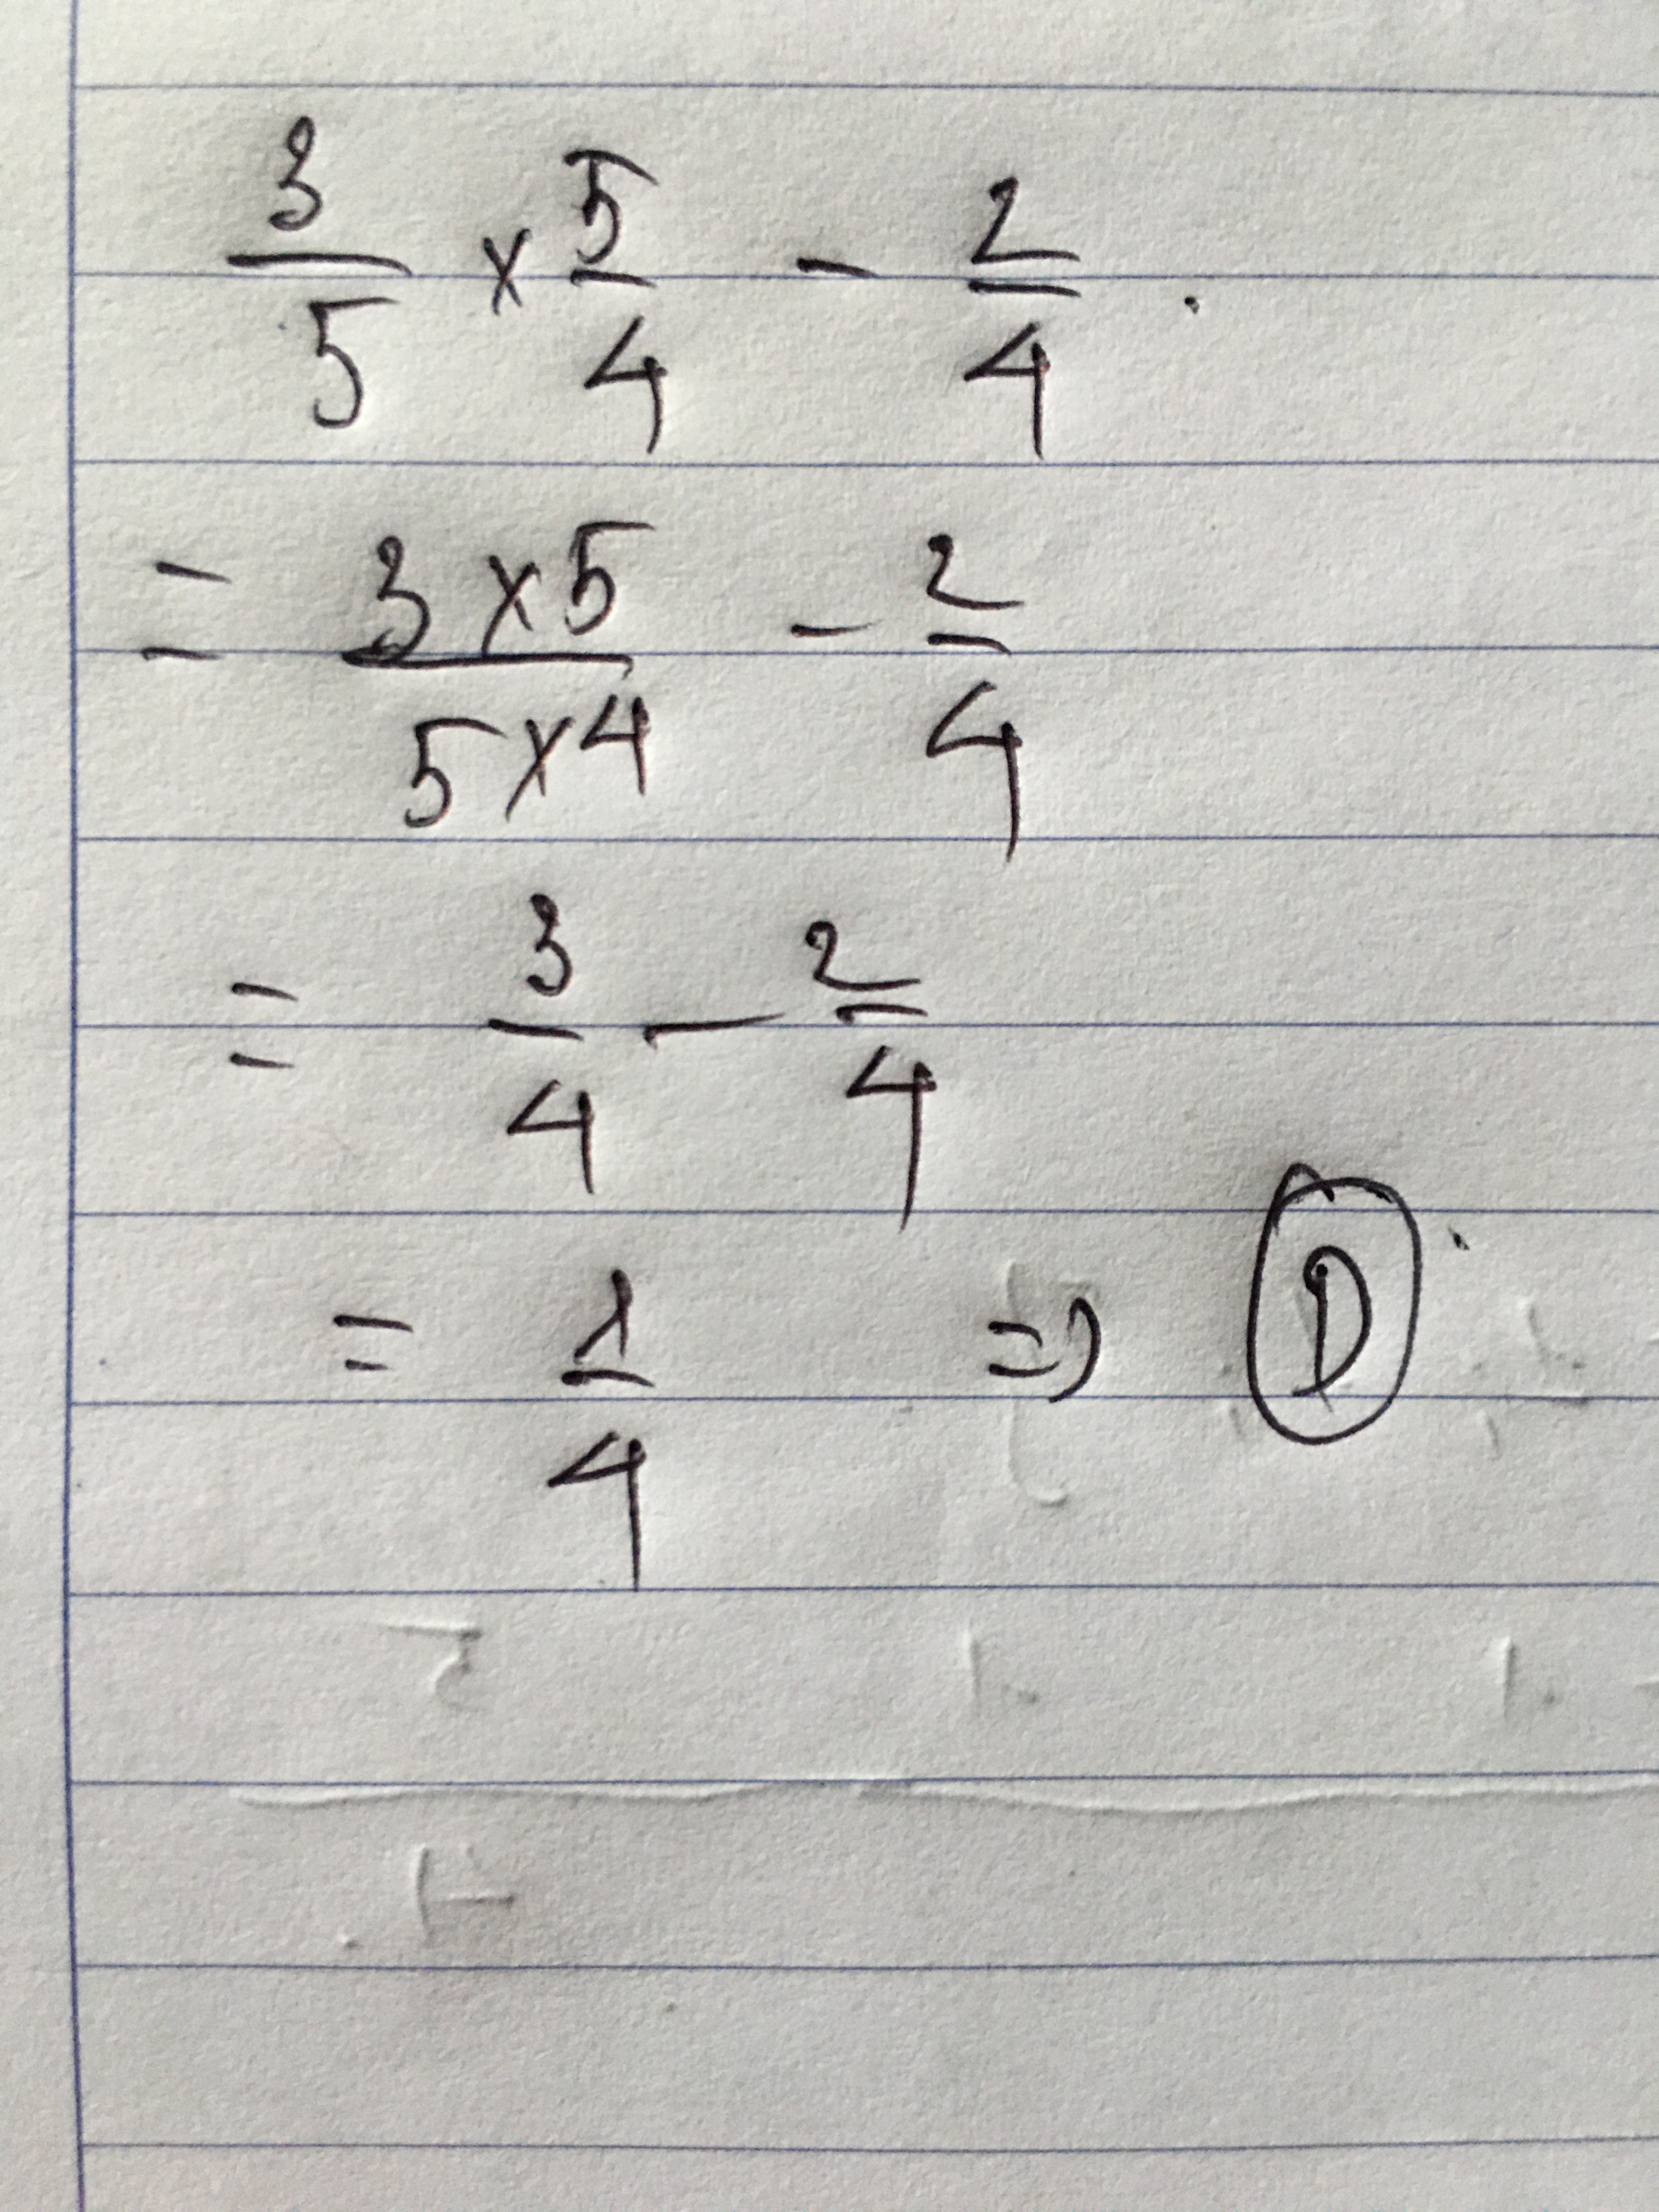 3/5 × 5/4 - 2/4 .
= 3 × 5 / 5 × 4 - 2/4
= 3/4 - 2/4
= 1/4 => D .